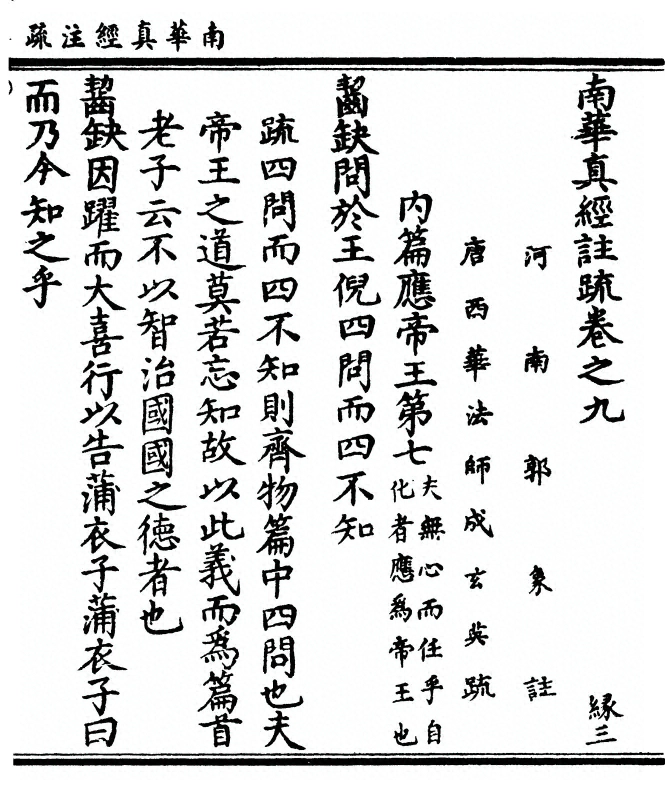 南華真經注疏
南華真經註疏卷之九 縁三
河南郭象註
唐西華法師成玄英疏
内篇應帝王第七 夫無心而任乎自
化者應爲帝王也
齧缺問於王倪四問而四不知
疏四問而四不知則齊物篇中四問也夫
帝王之道莫若忘知故以此義而爲篇首
老子云不以智治國國之德者也
齧缺因躍而大喜行以告蒲衣子蒲衣子曰
而乃今知之乎